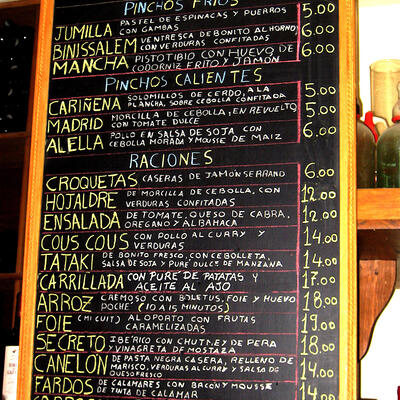 PINCHOS FRIOS
JUMILLA PASTEL DE ESPINACAS Y PUERROS 5.00
CON GAMBAS
BINISSALEM VENTRESCA DE BONITO AL HORNO 6.00
CON VERDURAS CONFITADAS
MANCHA PISTO TIBIO CON HUEVO DE 6.00
CODORNIZ FRITO Y JAMÓN
PINCHOS CALIENTES
CARIÑENA SOLOMILLOS DE CERDO, A LA 5.00
PLANCHA, SOBRE CEBOLLA CONFITADA
MADRID MORCILLA DE CEBOLLA, EN REVUELTO 5.00
CON TOMATE DULCE
ALELLA POLLO EN SALSA DE SOJA CON 6.00
CEBOLLA MORADA Y MOUSSE DE MAIZ
RACIONES
CROQUETAS CASERAS DE JAMÓN SERRANO 6.00
HOJALDRE DE MORCILLA DE CEBOLLA, CON 12.00
VERDURAS CONFITADAS
ENSALADA DE TOMATE, QUESO DE CABRA, 12.00
OREGANO Y ALBAHACA
COUS COUS CON POLLO AL CURRY Y 14.00
VERDURAS
TATAKI DE BONITO FRESCO, CON CEBOLLETA, 14.00
SALSA DE SOJA Y PURE DULCE DE MANZANA
CARRILLADA CON PURE DE PATATAS Y 17.00
ACEITE AL AJO
ARROZ CREMOSO CON BOLETUS, FOIE Y HUEVO 18.00
POCHÉ (10 A 15 MINUTOS)
FOIE (MI CUIT) AL OPORTO CON FRUTAS 19.00
CARAMELIZADAS
SECRETO IBÉRICO CON CHUTNEY DE PERA 18.00
Y VINAGRETA DE MOSTAZA
CANELON DE PASTA NEGRA CASERA, RELLENO DE 14.00
MARISCO, VERDURAS AL CURRY Y SALSA DE
QUESO FRESCO
FARDOS DE CALAMARES CON BACON Y MOUSSE 14.00
DE TINTA DE CALAMAR